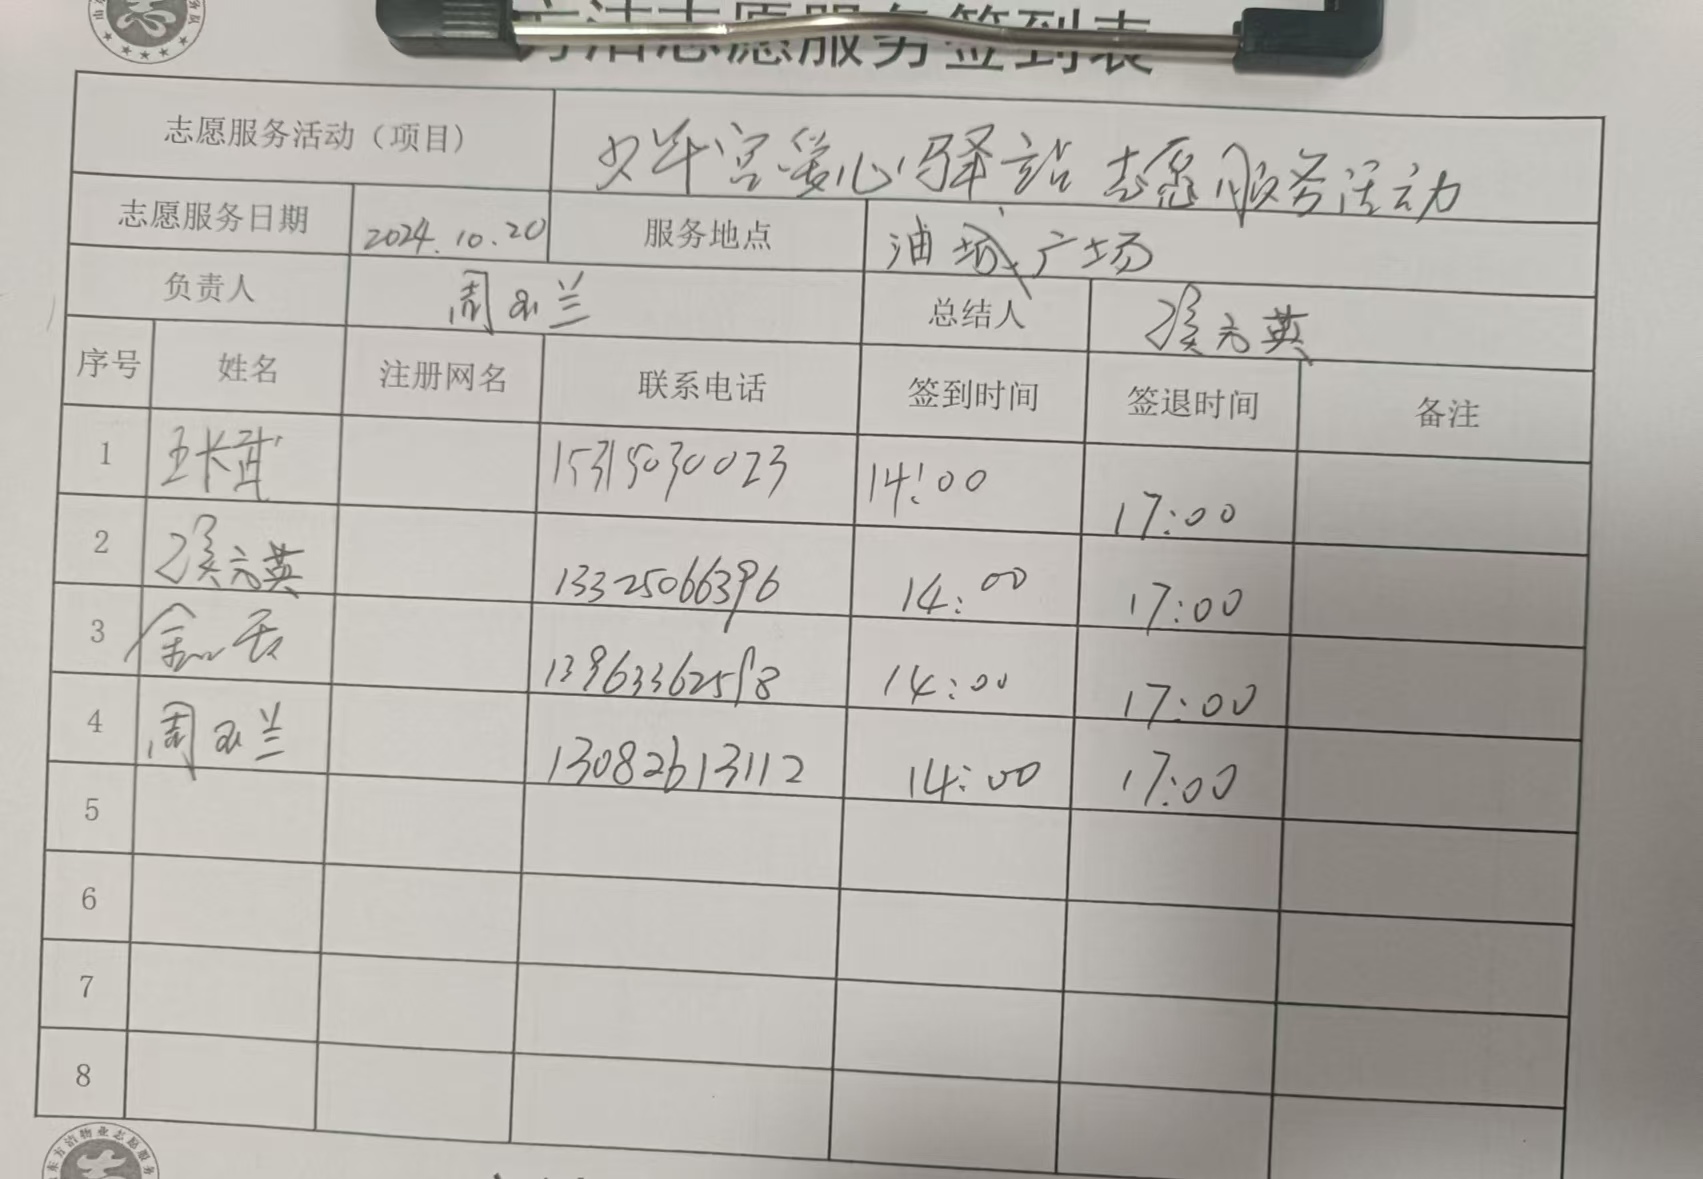 方洁志愿服务签到表
志愿服务活动（项目） 少年宫爱心驿站志愿服务活动
志愿服务日期 2024.10.20 服务地点 油城广场
负责人 周玉兰 总结人 侯元英
序号 姓名 注册网名 联系电话 签到时间 签退时间 备注
1 王长武 15315030023 14:00 17:00
2 侯元英 13325066396 14:00 17:00
3 13963362598 14:00 17:00
4 周玉兰 13082613112 14:00 17:00
5
6
7
8